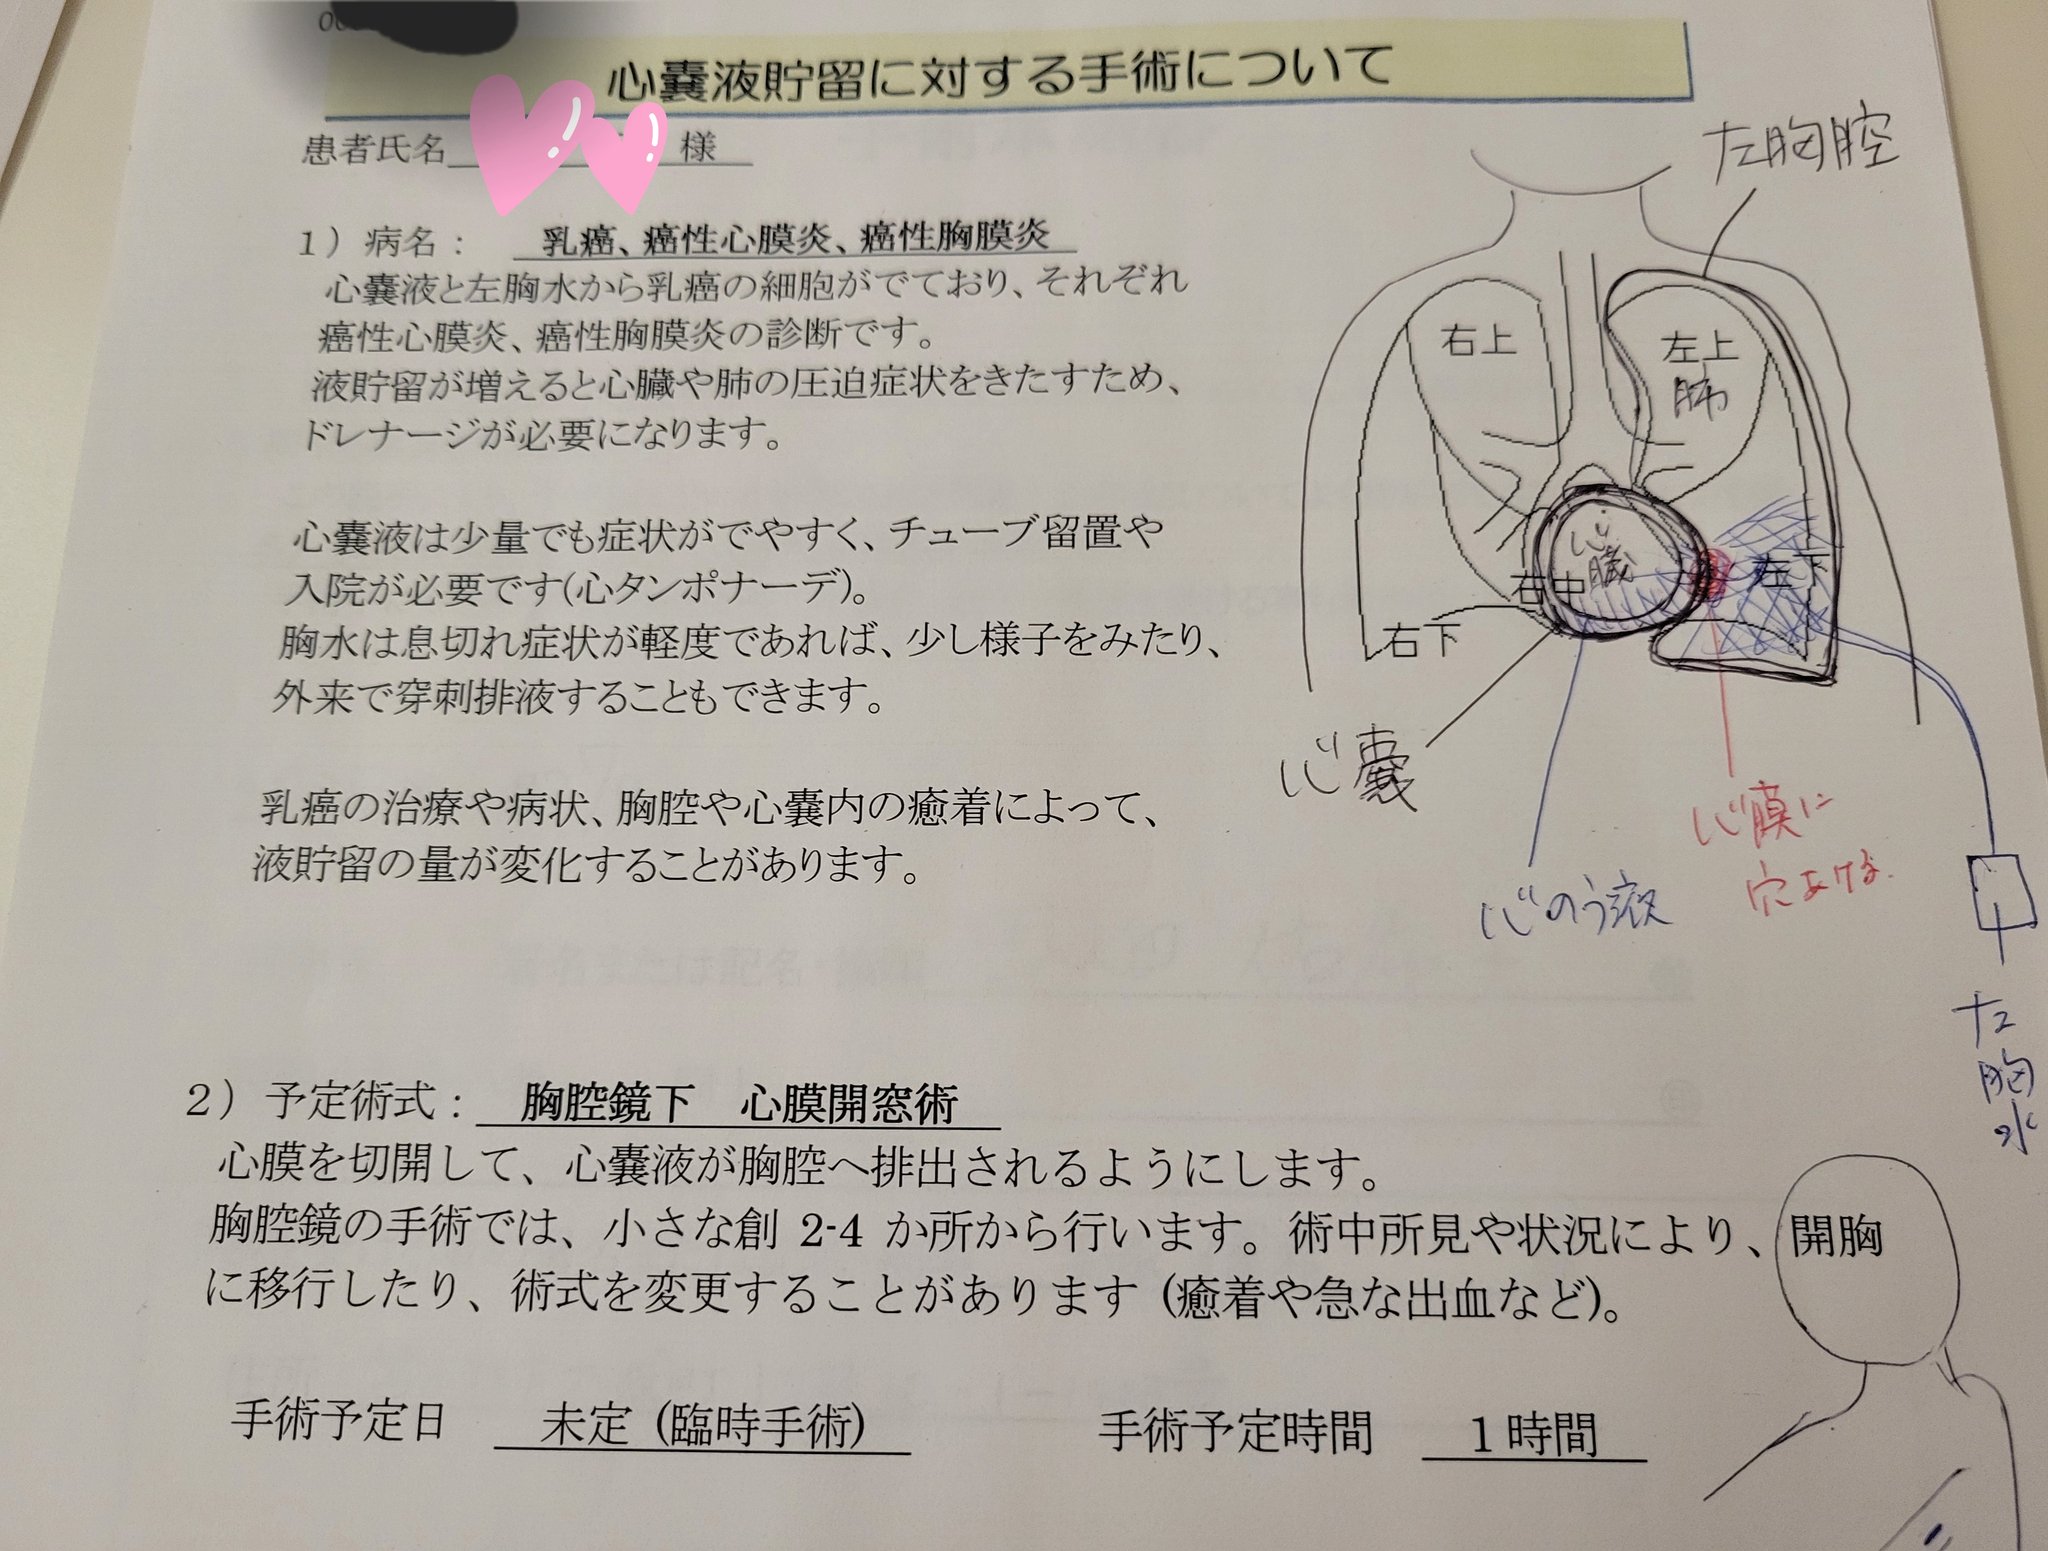 心嚢液貯留に対する手術について
患者氏名 様
1）病名： 乳癌、癌性心膜炎、癌性胸膜炎
心嚢液と左胸水から乳癌の細胞がでており、それぞれ
癌性心膜炎、癌性胸膜炎の診断です。
液貯留が増えると心臓や肺の圧迫症状をきたすため、
ドレナージが必要になります。
心嚢液は少量でも症状がでやすく、チューブ留置や
入院が必要です(心タンポナーデ)。
胸水は息切れ症状が軽度であれば、少し様子をみたり、
外来で穿刺排液することもできます。
乳癌の治療や病状、胸腔や心嚢内の癒着によって、
液貯留の量が変化することがあります。
左胸腔
右上
左上
肺
心臓
右中
左下
右下
心嚢
心のう液
心膜に
穴あける
左胸水
2）予定術式： 胸腔鏡下 心膜開窓術
心膜を切開して、心嚢液が胸腔へ排出されるようにします。
胸腔鏡の手術では、小さな創 2-4 か所から行います。術中所見や状況により、開胸
に移行したり、術式を変更することがあります (癒着や急な出血など)。
手術予定日 未定 (臨時手術) 手術予定時間 1時間